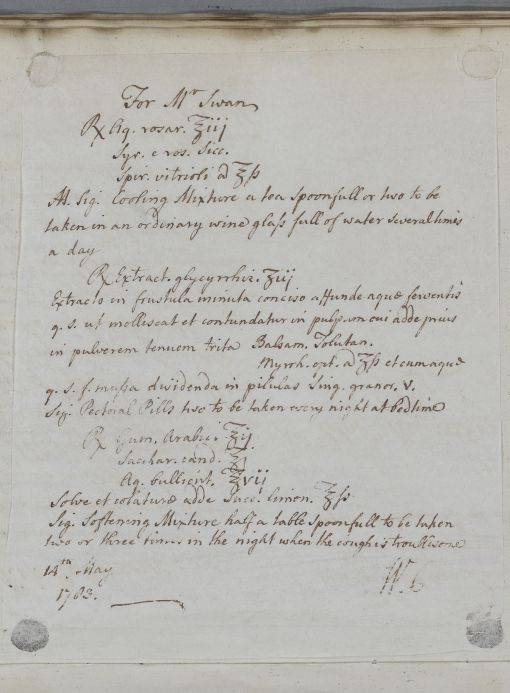 For Mr Swan
℞ Aq. rosar. ℥iij
Syr. e ros. sicc.
Spir. vitrioli a ℥ß
M. Sig. Cooling Mixture a tea spoonfull or two to be
taken in an ordinary wine glass full of water several times
a day
℞ Extract. glycyrrhiz. ℥iij
Extracto in frustula minuta conciso affunde aquæ ferventis
q. s. ut mollescat et contundatur in pulp. cui adde prius
in pulverem tenuem trita Balsam. Tolutan.
Myrrh. opt. a ℥ß et cum aquæ
q. s. f. massa dividenda in pilulas sing. granor. v.
Sig. Pectoral Pills two to be taken every night at bedtime
℞ Gum. Arabic. ℥ij
Sacchar. cand.
Aq. bullient. ℥vij
Solve et colaturæ adde Succ. limon. ℥ß
Sig. Softening Mixture half a table spoonfull to be taken
two or three times in the night when the cough is troublesome
14th May
1783.
W. C